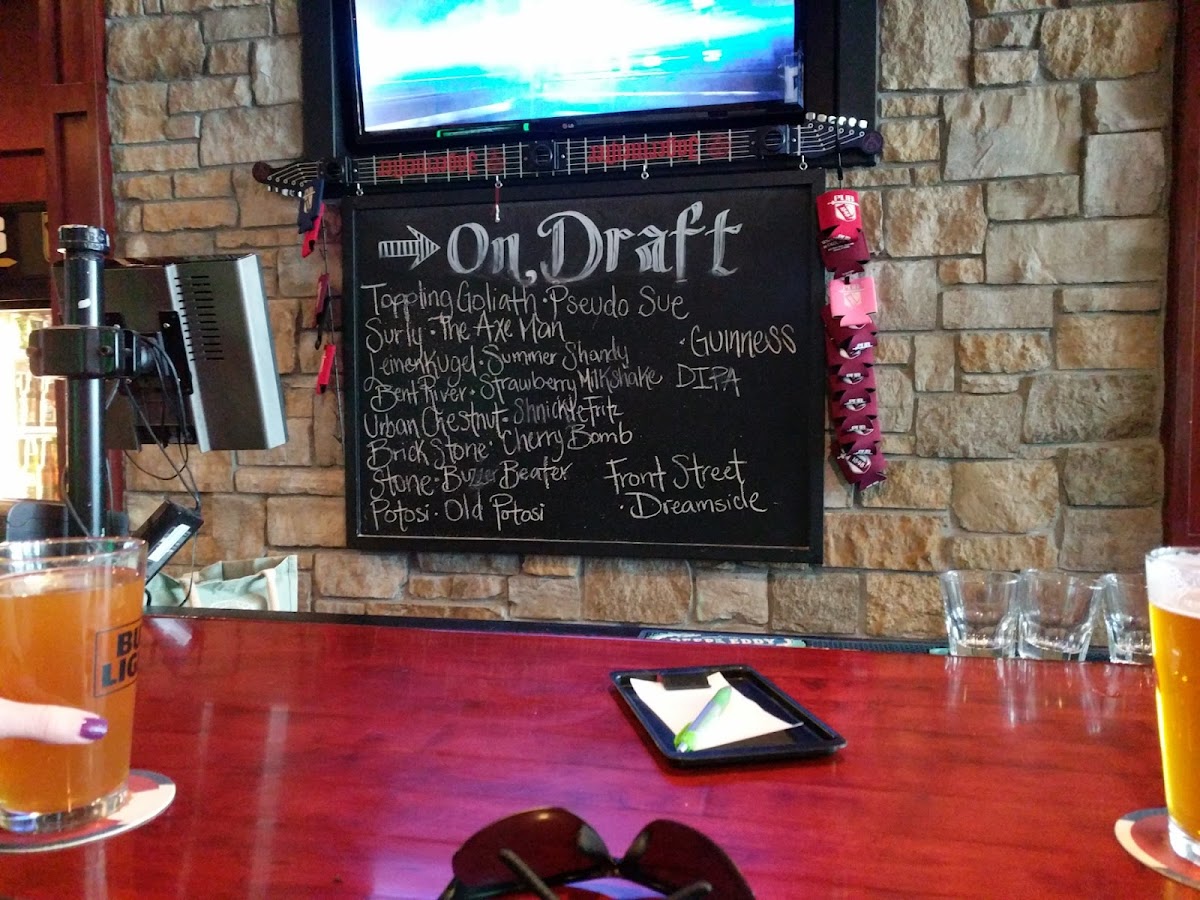 On Draft
Toppling Goliath · Pseudo Sue
Surly · The Axe Man
Leinenkugel · Summer Shandy
Bent River · Strawberry Milkshake
Urban Chestnut · Shnickelefritz
Brick Stone · Cherry Bomb
Stone · Buzzer Beater
Potosi · Old Potosi
· GUINNESS
DIPA
Front Street
· Dreamsicle
PUB
LG
BU
LIG